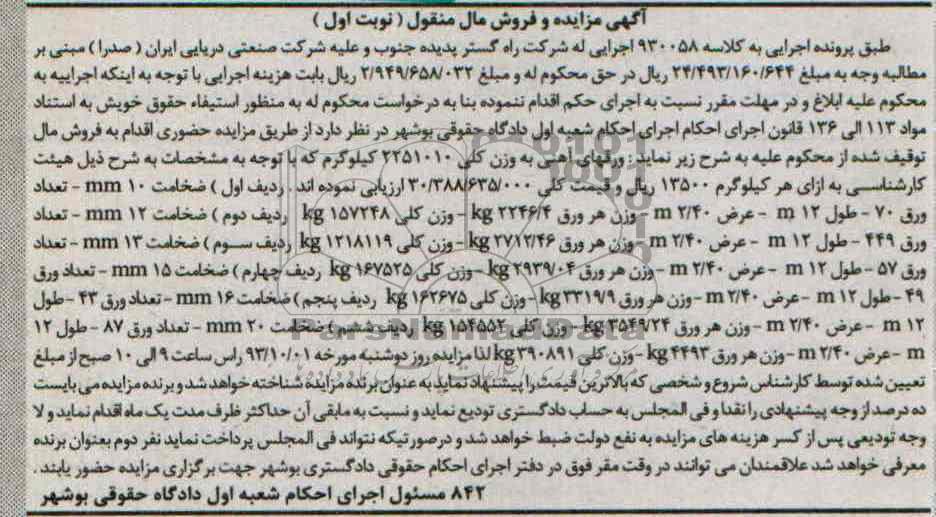 آگهی مزایده و فروش مال منقول ( نوبت اول )
طبق پرونده اجرایی به کلاسه ۹۳۰۰۵۸ اجرایی له شرکت راه گستر پدیده جنوب و علیه شرکت صنعتی دریایی ایران ( صدرا ) مبنی بر
مطالبه وجه به مبلغ ۲۴/۴۹۳/۱۶۰/۶۴۴ ریال در حق محکوم له و مبلغ ۲/۹۴۹/۶۵۸/۰۳۲ ریال بابت هزینه اجرایی با توجه به اینکه اجراییه به
محکوم علیه ابلاغ و در مهلت مقرر نسبت به اجرای حکم اقدام ننموده بنا به درخواست محکوم له به منظور استیفاء حقوق خویش به استناد
مواد ۱۱۳ الی ۱۳۶ قانون اجرای احکام اجرای احکام شعبه اول دادگاه حقوقی بوشهر در نظر دارد از طریق مزایده حضوری اقدام به فروش مال
توقیف شده از محکوم علیه به شرح زیر نماید : ورقهای آهنی به وزن کلی ۲۲۵۱۰۱۰ کیلوگرم که با توجه به مشخصات به شرح ذیل هیئت
کارشناسی به ازای هر کیلوگرم ۱۳۵۰۰ ریال و قیمت کلی ۳۰/۳۸۸/۶۳۵/۰۰۰ ارزیابی نموده اند . ردیف اول ) ضخامت ۱۰ mm - تعداد
ورق ۷۰ - طول ۱۲ m - عرض ۲/۴۰ m - وزن هر ورق ۲۲۴۶/۴ kg - وزن کلی ۱۵۷۲۴۸ kg ردیف دوم ) ضخامت ۱۲ mm - تعداد
ورق ۴۴۹ - طول ۱۲ m - عرض ۲/۴۰ m - وزن هر ورق ۲۷۱۲/۴۶ kg - وزن کلی ۱۲۱۸۱۱۹ kg ردیف سوم ) ضخامت ۱۳ mm - تعداد
ورق ۵۷ - طول ۱۲ m - عرض ۲/۴۰ m - وزن هر ورق ۲۹۳۹/۰۴ kg - وزن کلی ۱۶۷۵۲۵ kg ردیف چهارم ) ضخامت ۱۵ mm - تعداد ورق
۴۹ - طول ۱۲ m - عرض ۲/۴۰ m - وزن هر ورق ۳۳۱۹/۹ kg - وزن کلی ۱۶۲۶۷۵ kg ردیف پنجم ) ضخامت ۱۶ mm - تعداد ورق ۴۳ - طول
۱۲ m - عرض ۲/۴۰ m - وزن هر ورق ۳۵۴۹/۲۴ kg - وزن کلی ۱۵۴۵۵۲ kg ردیف ششم ) ضخامت ۲۰ mm - تعداد ورق ۸۷ - طول ۱۲
m - عرض ۲/۴۰ m - وزن هر ورق ۴۴۹۳ kg - وزن کلی ۳۹۰۸۹۱ kg لذا مزایده روز دوشنبه مورخه ۹۳/۱۰/۰۱ راس ساعت ۹ الی ۱۰ صبح از مبلغ
تعیین شده توسط کارشناس شروع و شخصی که بالاترین قیمت را پیشنهاد نماید به عنوان برنده مزایده شناخته خواهد شد و برنده مزایده می بایست
ده درصد از وجه پیشنهادی را نقدا و فی المجلس به حساب دادگستری تودیع نماید و نسبت به مابقی آن حداکثر ظرف مدت یک ماه اقدام نماید و لا
وجه تودیعی پس از کسر هزینه های مزایده به نفع دولت ضبط خواهد شد و درصورتیکه نتواند فی المجلس پرداخت نماید نفر دوم بعنوان برنده
معرفی خواهد شد علاقمندان می توانند در وقت مقر فوق در دفتر اجرای احکام حقوقی دادگستری بوشهر جهت برگزاری مزایده حضور یابند .
۸۴۲ مسئول اجرای احکام شعبه اول دادگاه حقوقی بوشهر
ParsNamadData